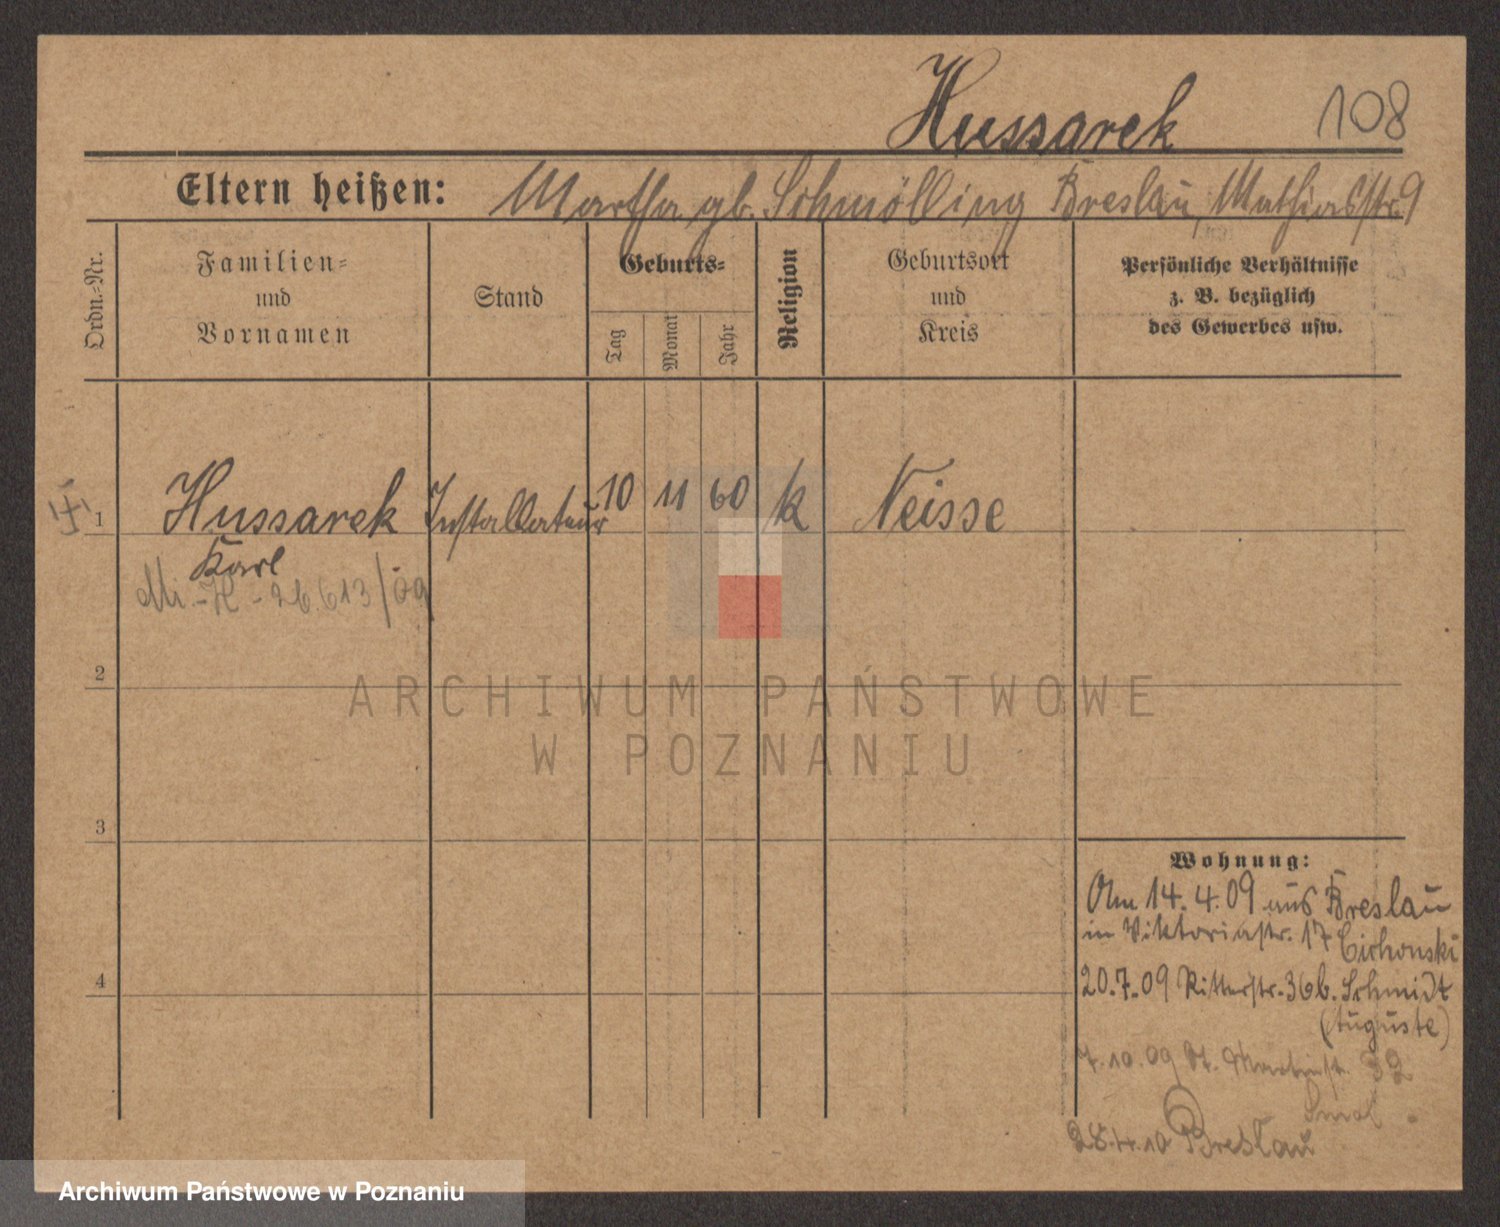 Hussarek 108
Eltern heißen: Martha gb. Schmölling Breslau, Mathiasstr. 9
Ordn.-Nr.
Familien-
und
Vornamen
Stand
Geburts-
Tag
Monat
Jahr
Religion
Geburtsort
und
Kreis
Persönliche Verhältnisse
z. B. bezüglich
des Gewerbes usw.
1 Hussarek Installateur 10 11 60 k Neisse
Karl
26613/09
2
ARCHIWUM PAŃSTWOWE
W POZNANIU
3
Wohnung:
14.4.09 aus Breslau
in Viktoriastr. 17 Cichonski
4
20.7.09 Ritterstr. 36 b. Schmidt
(Auguste)
7.10.09 St. Martinstr. 32
Breslau
Archiwum Państwowe w Poznaniu